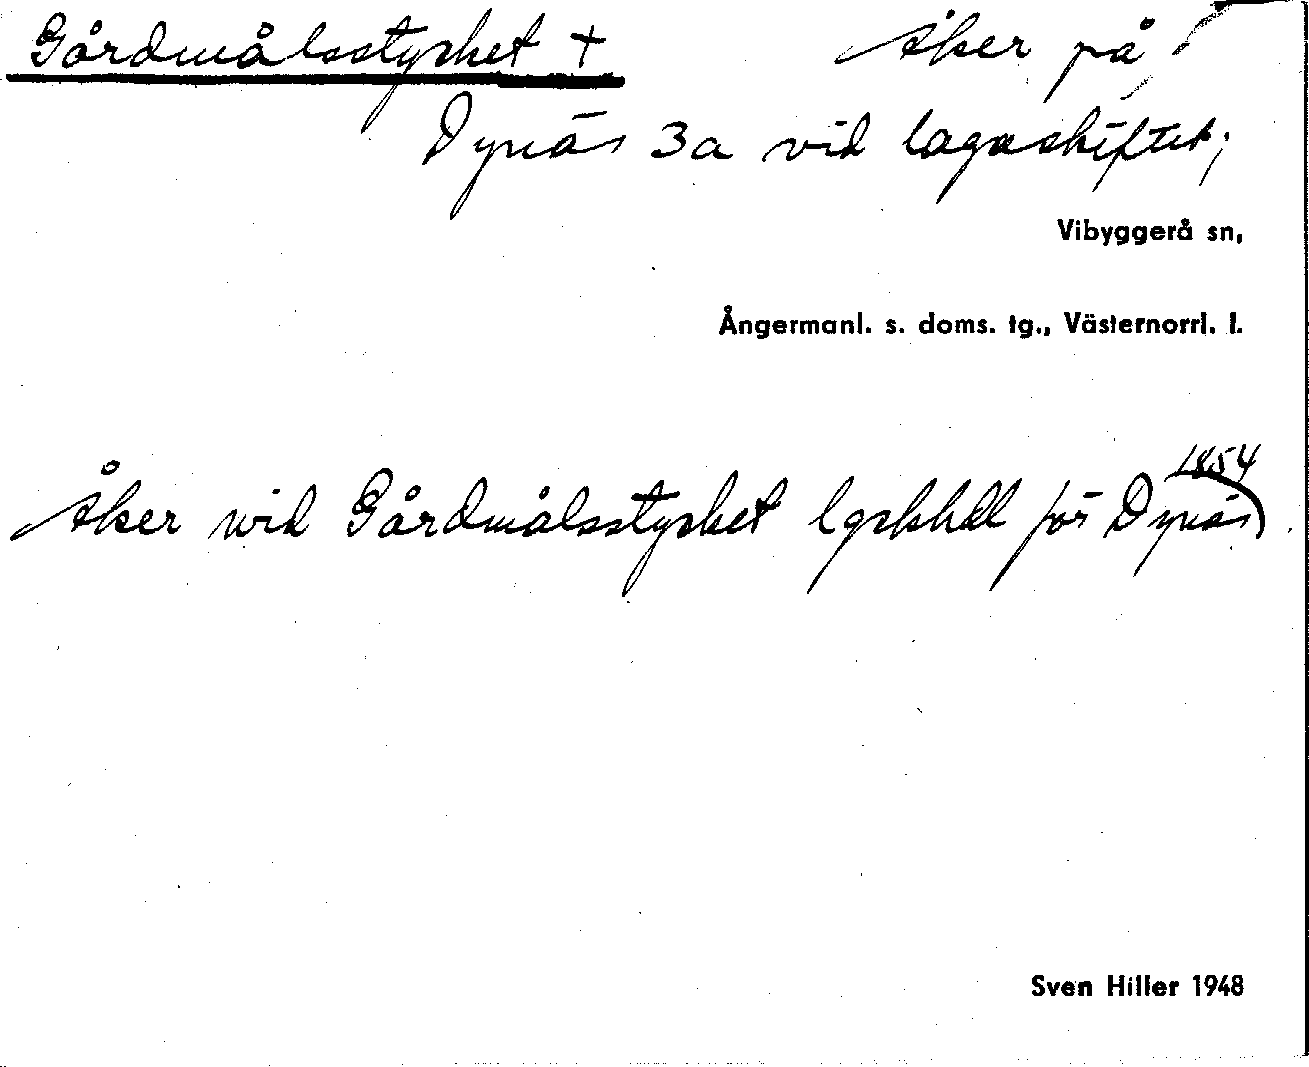 Gårdmålsstycket + Åker på
Dynäs 3a vid lagaskiftet;
Vibyggerå sn,
Ångermanl. s. doms. tg., Västernorrl. l.
Åker wid Gårdmålsstycket lgskhdl för Dynäs 1854
Sven Hiller 1948